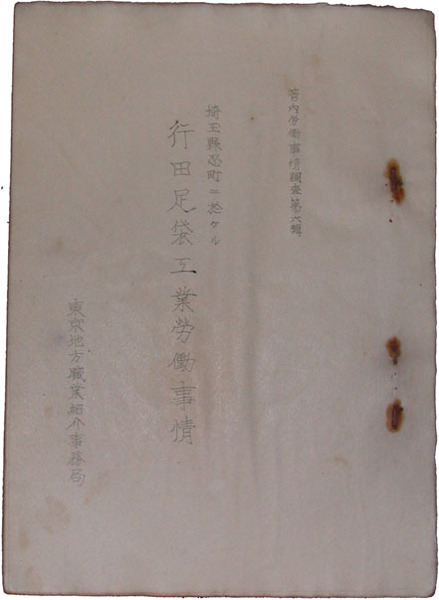 管內労働事情調査第六輯
埼玉縣忍町ニ於ケル
行田足袋工業勞働事情
東京地方職業紹介事務局